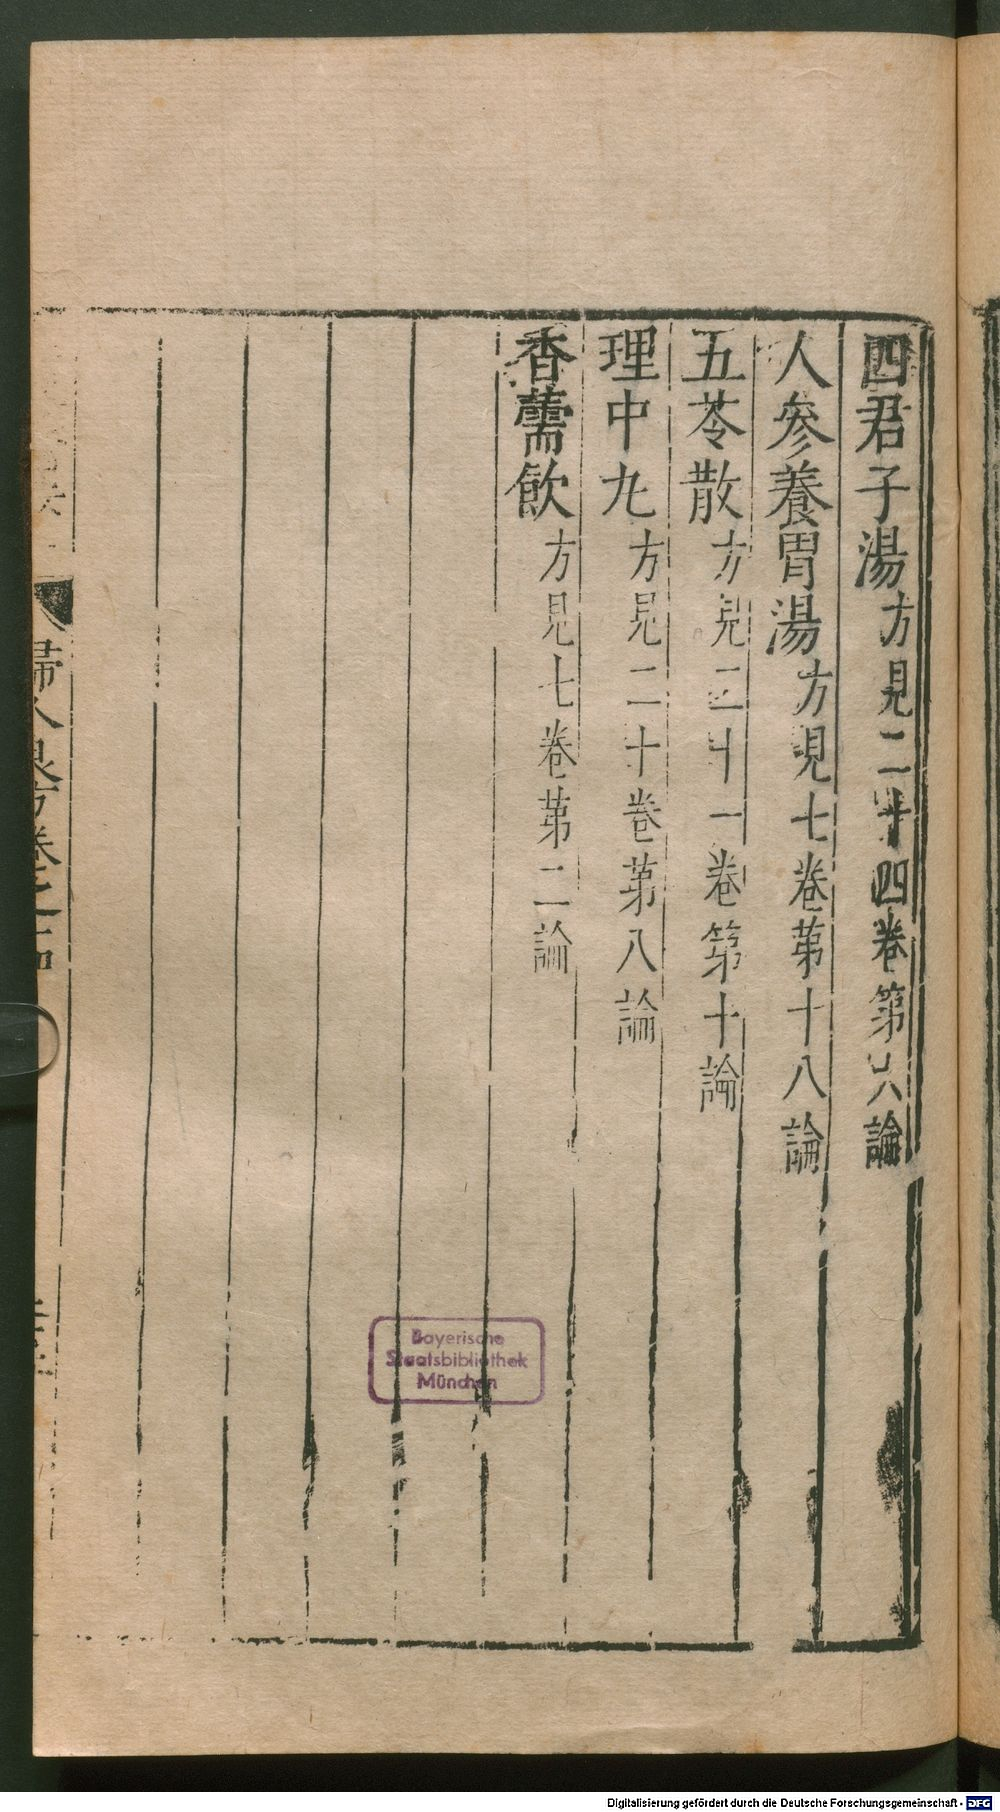 四君子湯方見二十四卷第六論
人參養胃湯方見七卷第十八論
五苓散方見二十一卷第十論
理中丸方見二十卷第八論
香薷飲方見七卷第二論
婦人良方卷之二四
Bayerische
Staatsbibliothek
München
Digitalisierung gefördert durch die Deutsche Forschungsgemeinschaft - DFG